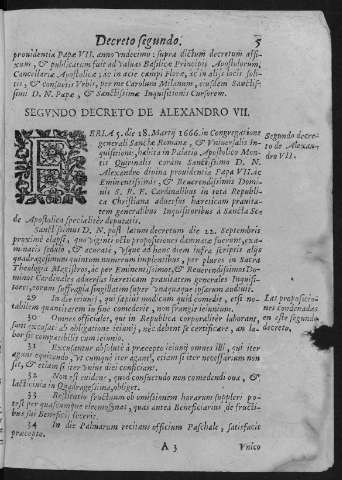 Decreto segundo. 5
prouidentia Papæ VII. anno vndecimo: supra dictum decretum affi-
xum, & publicatum fuit ad valuas Basilicæ Principis Apostolorum,
Cancellariæ Apostolicæ, ac in acie campi Floræ, ac in alijs locis soli-
tis, & consuetis Vrbis, per me Carolum Milanum, eiusdem Sanctis-
simi D. N. Papæ, & Sanctissimæ Inquisitionis Cursorem.
SEGVNDO DECRETO DE ALEXANDRO VII.
FERIA 5. die 18. Martij 1666. in Congregatione
generali Sanctæ Romanæ, & Vniuersalis In-
quisitionis, habita in Palatio Apostolico Mon-
tis Quirinalis coram Sanctissimo D. N.
Alexandro diuina prouidentia Papa VII. ac
Eminentissimis, & Reuerendissimis Domi-
nis S. R. E. Cardinalibus in tota Republi-
ca Christiana aduersus hæreticam prauita-
tem generalibus Inquisitoribus à Sancta Se-
de Apostolica specialiter deputatis.
Segundo decre-
to de Alexan-
dro VII.
Sanctissimus D. N. post latum decretum die 22. Septembris
proximè elapsi, quo viginti octo propositiones damnatæ fuerunt, exa-
minatis sedulò, & accuratè, vsque ad hanc diem infra scriptis alijs
quadragesimum quintum numerum implentibus, per plures in Sacra
Theologia Magistros, ac per Eminentissimos, & Reuerendissimos Do-
minos Cardinales aduersus hæreticam prauitatem generales Inquisi-
tores, eorum suffragia singulatim super vnaquaque ipsarum audiuit.
29 In die ieiunij, qui sæpiùs modicum quid comedit, etsi no-
tabilem quantitatem in fine comederit, non frangit ieiunium.
30 Omnes officiales, qui in Republica corporaliter laborant,
sunt excusati ab obligatione ieiunij, nec debent se certificare, an la-
bor sit compatibilis cum ieiunio.
Las proposicio-
nes condenadas
en este segundo
decreto.
31 Excusantur absolutè à præcepto ieiunij omnes illi, qui iter
agunt equitando, vt cumque iter agant, etiam si iter necessarium non
sit, & etiam si iter vnius diei conficiant.
32 Non est euidens, quod consuetudo non comedendi oua, &
lacticinia in Quadragesima, obliget.
33 Restitutio fructuum ob omissionem horarum suppleri po-
test per quascumque eleemosynas, quas antea Beneficiarius de fructi-
bus sui Beneficij fecerit.
34 In die Palmarum recitans officium Paschale, satisfacit
præcepto.
A 3 Vnico